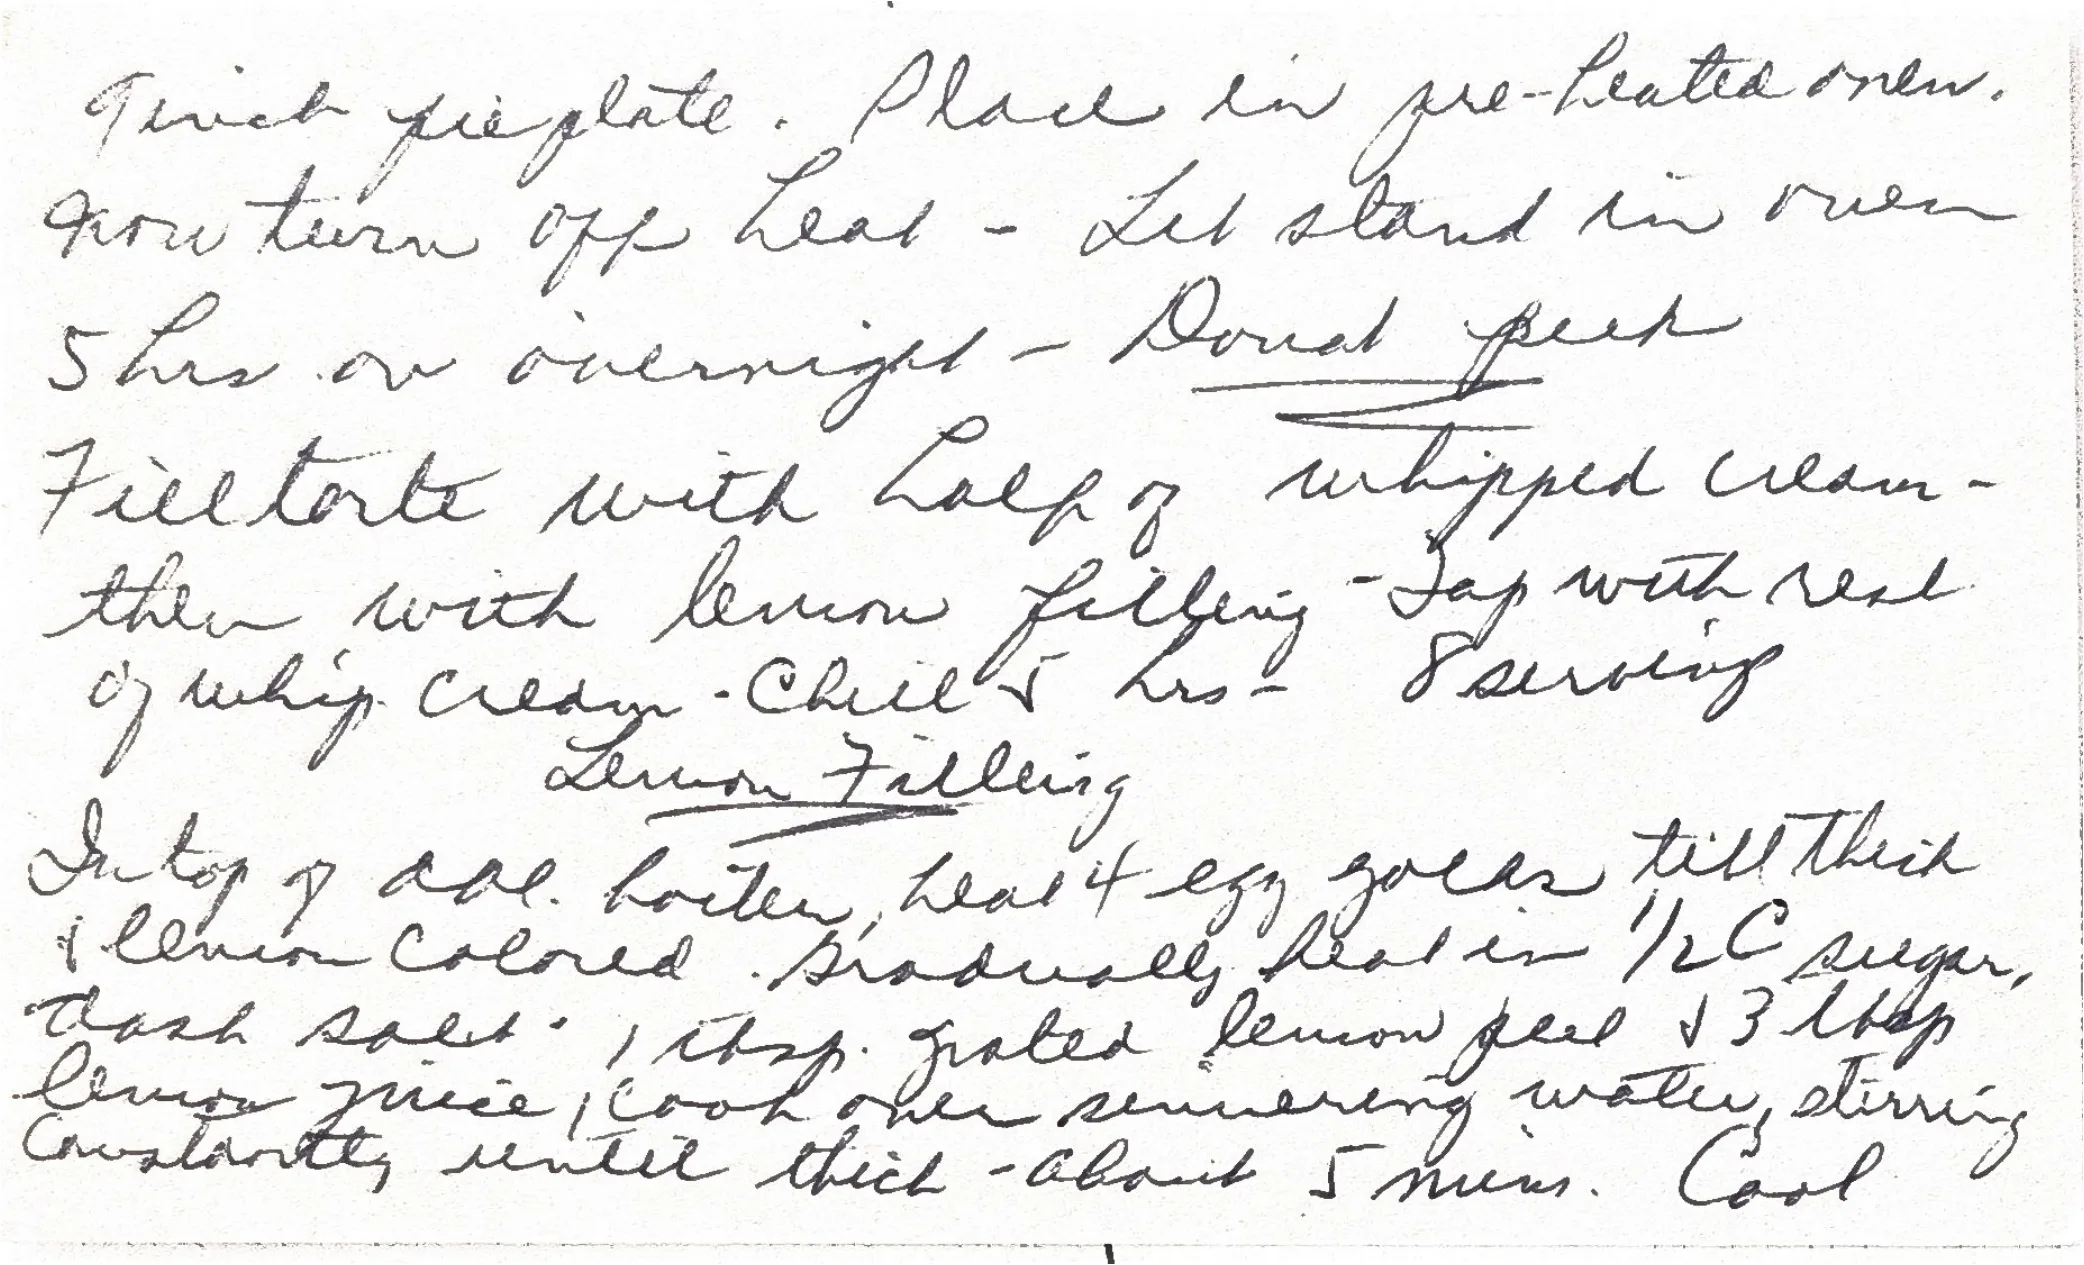 9 inch pie plate. Place in pre-heated oven.
Now turn off heat - Let stand in oven
5 hrs or overnight - Donot peek
Fill torte with half of whipped cream -
then with lemon filling - Top with rest
of whip. cream - Chill 5 hrs - 8 serving
Lemon Filling
In top of dbl. boiler, beat 4 egg yolks till thick
& lemon colored. Gradually beat in 1/2 C sugar,
dash salt, 1 tbsp. grated lemon peel & 3 tbsp
lemon juice, cook over simmering water, stirring
constantly until thick - about 5 mins. Cool